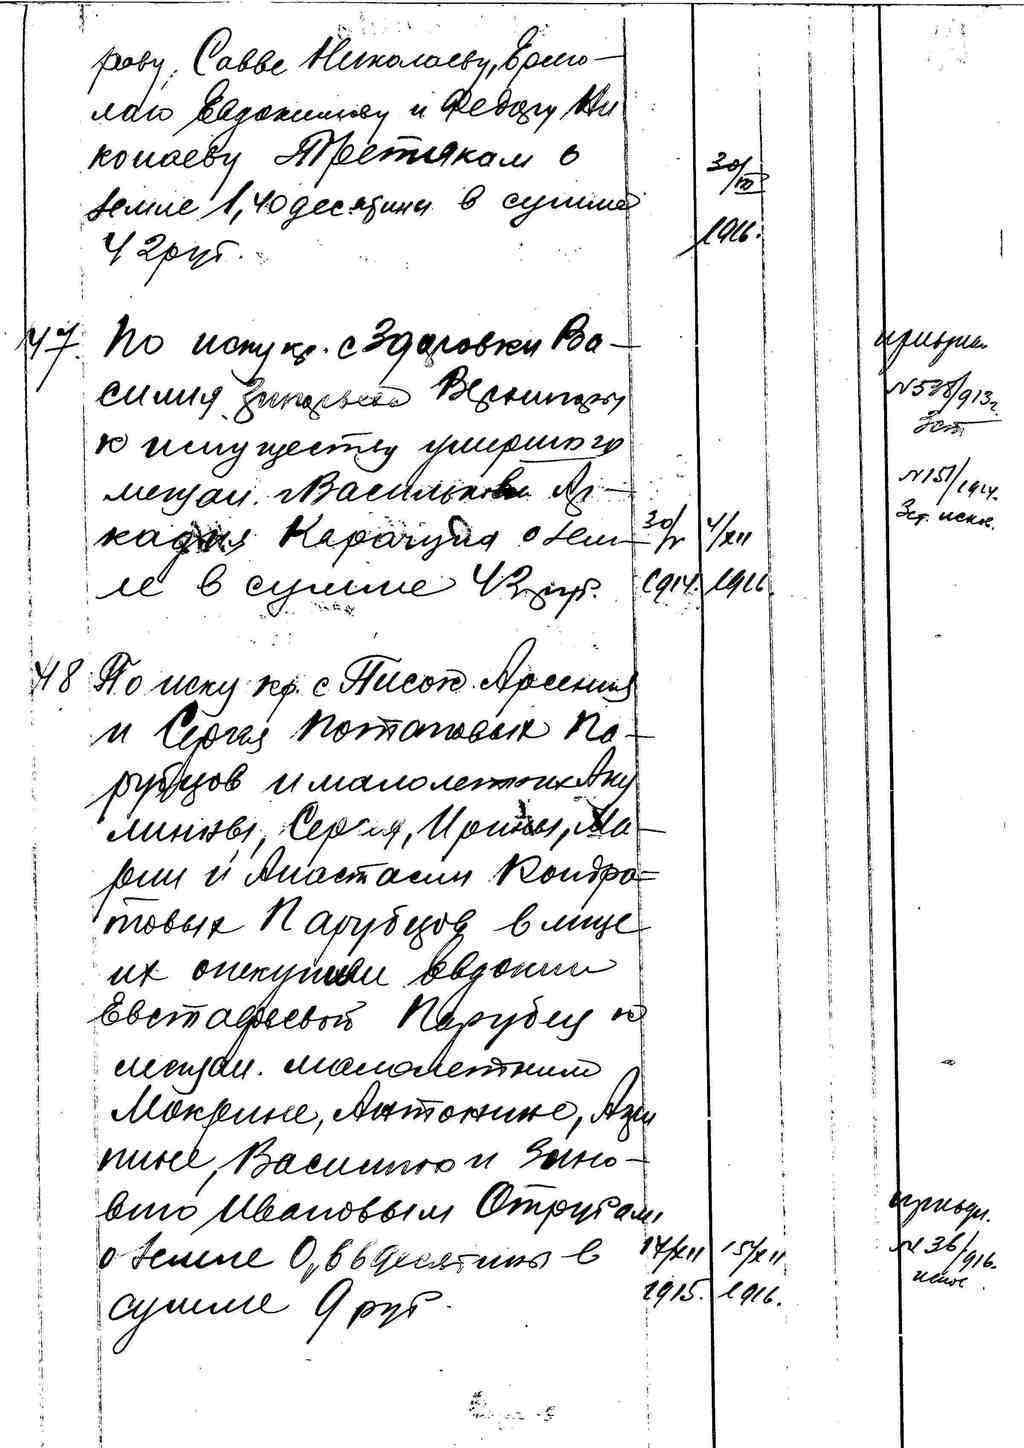 рову, Савве Николаеву, Ермо-
лаю Евдокимову и Федору Ни
колаеву Третякам о
земле 1,40 десятины в сумме
42 руб.
30/III
1916.
47. По иску кр. с Здоровки Ва-
силия
к имуществу умершого
мещан. г Василькова Ар-
кадия Карачуна о зем-
ле в сумме 42 руб.
30/V 4/XII
1914. 1916.
N 538/913 г.
N 151/1914.
48 По иску кр. с Писок. Арсения
и Сергея Потаповых Па-
рубцов и малолетних Аку
линины, Сергея, Ирины, Ма-
рии и Анастасии Кондра-
товых Парубцов в лице
их опекунши Евдокии
Евстафьевой Парубец к
мещан. малолетним
Мокрине, Антонине, Агри
пине, Василию и Зино-
вию Ивановым Отрубам
о земле 0,66 десятины в
сумме 9 руб.
17/XII 15/XII
1915. 1916.
N 36/916.